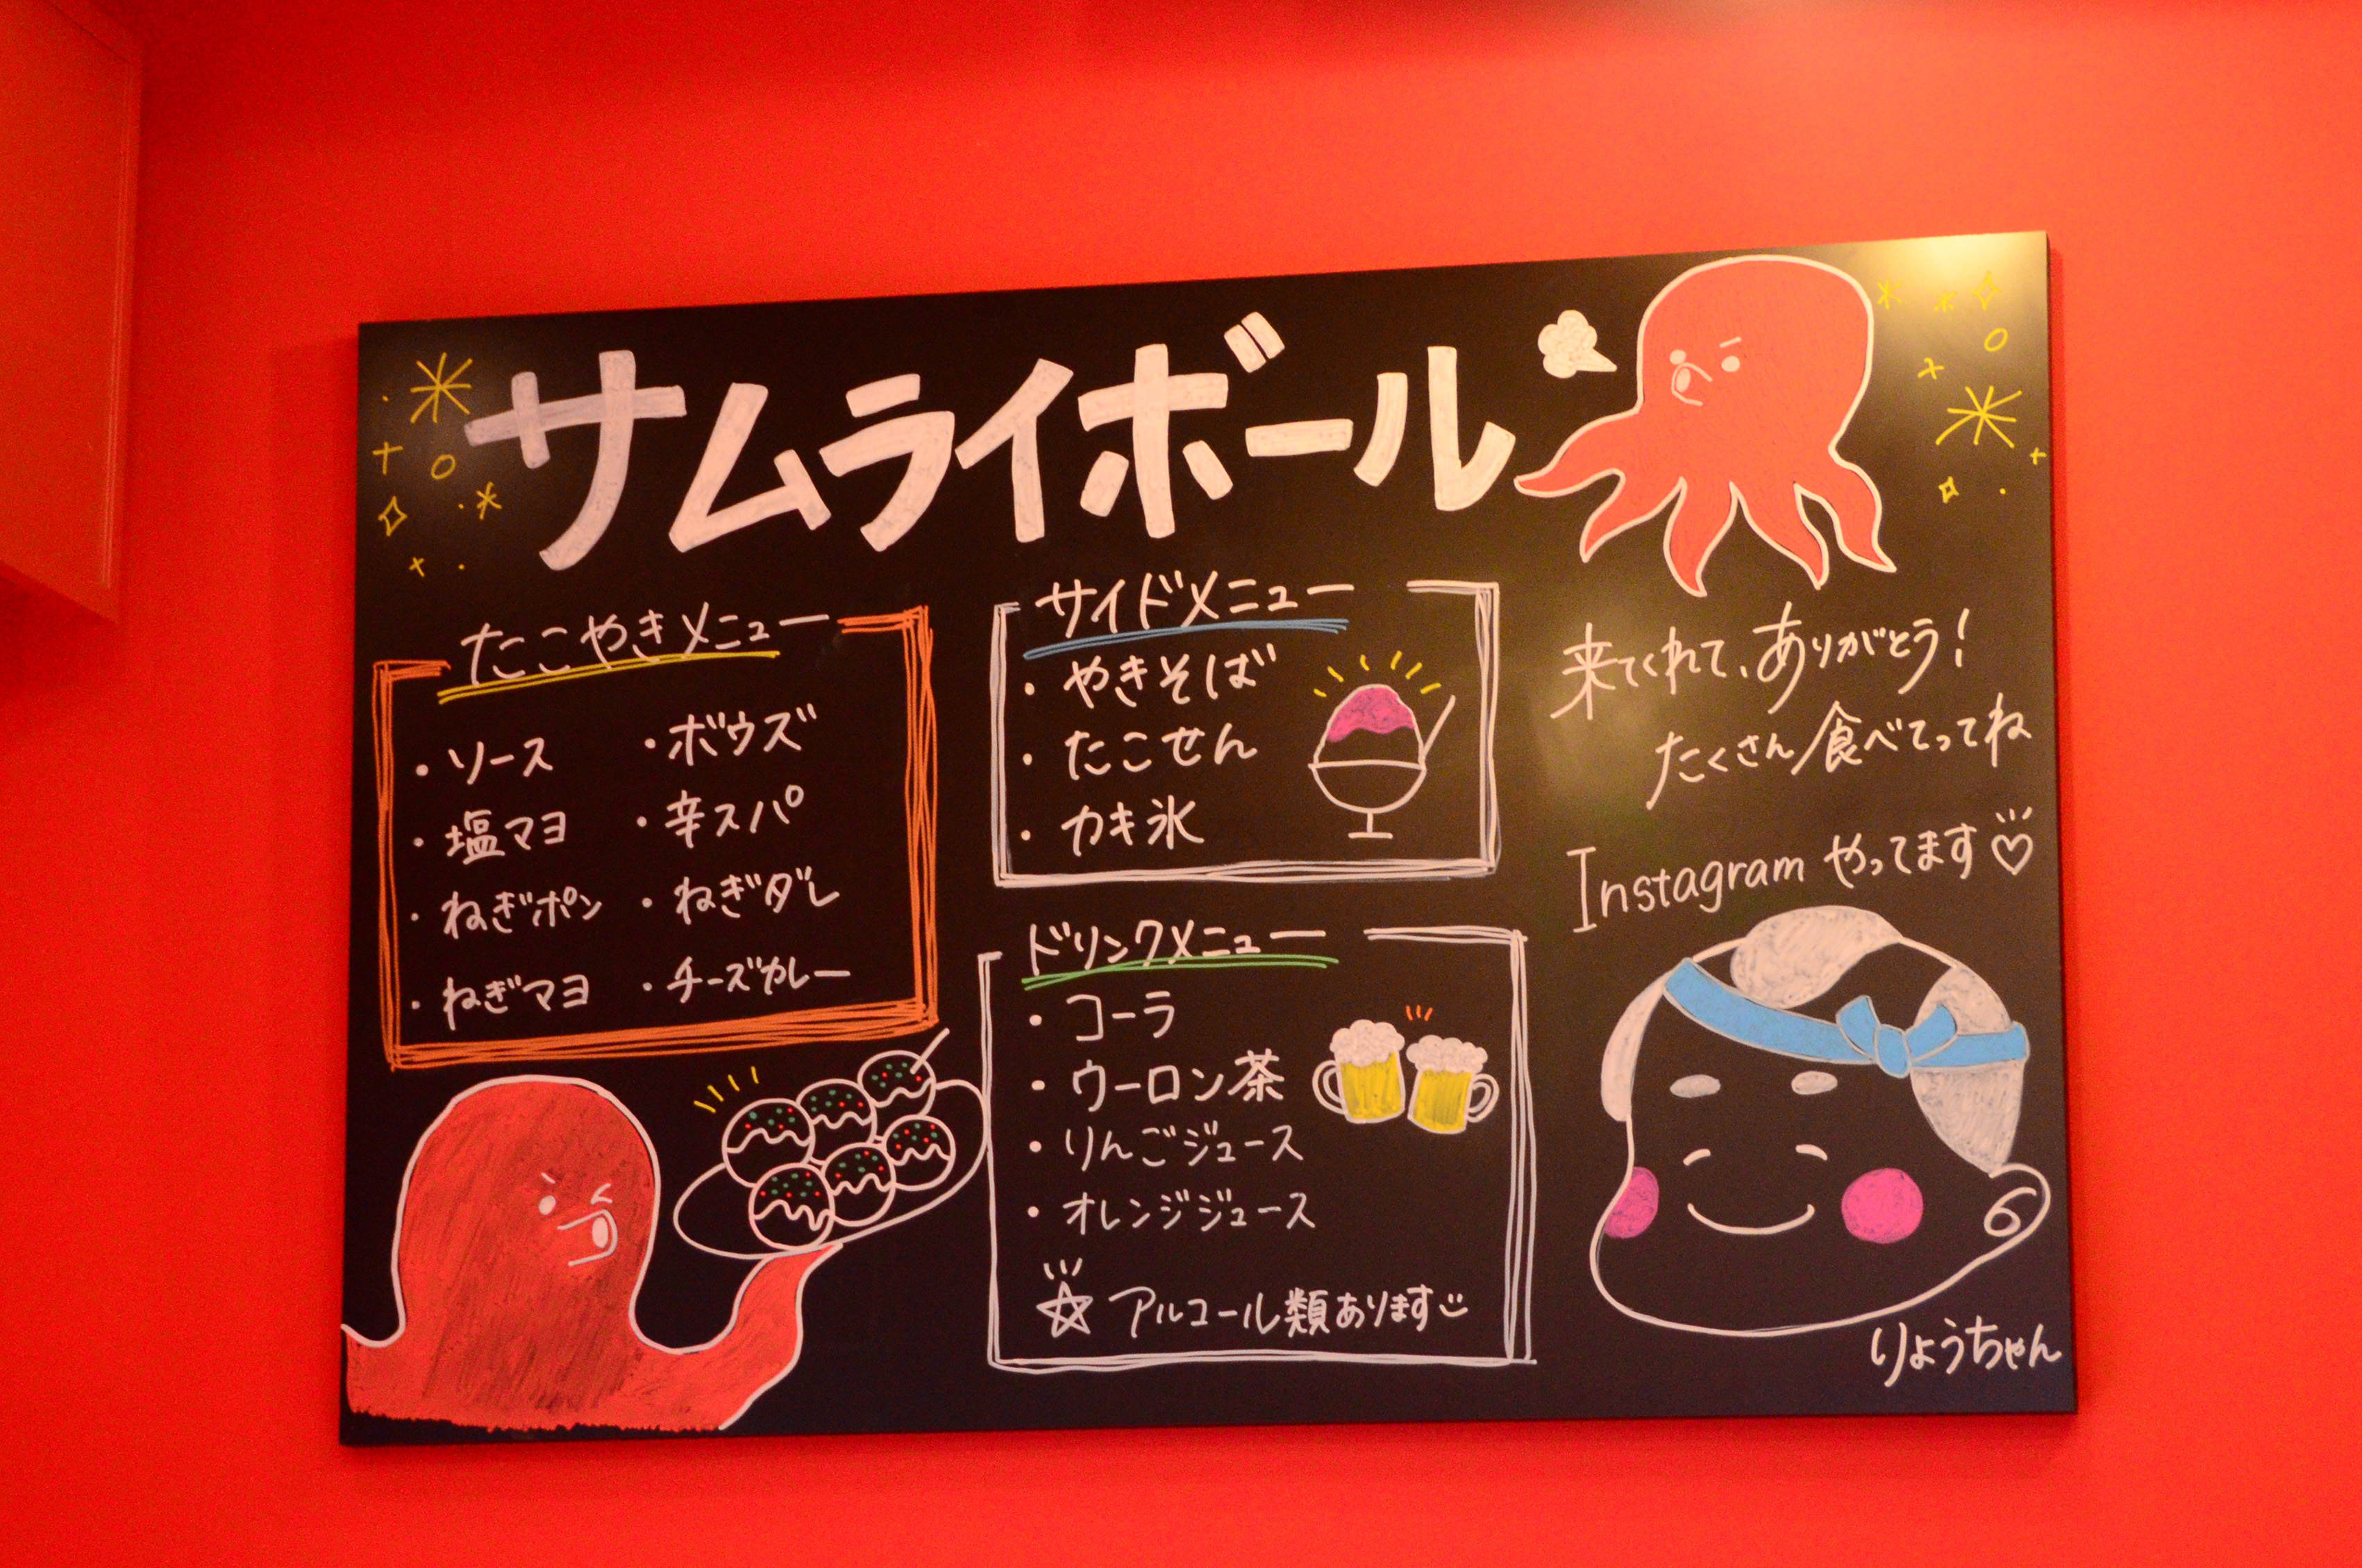 サムライボール
たこやきメニュー
・ソース ・ボウズ
・塩マヨ ・辛スパ
・ねぎポン ・ねぎダレ
・ねぎマヨ ・チーズカレー
サイドメニュー
・やきそば
・たこせん
・カキ氷
ドリンクメニュー
・コーラ
・ウーロン茶
・りんごジュース
・オレンジジュース
☆ アルコール類あります
来てくれて、ありがとう!
たくさん食べてってね
Instagram やってます♡
りょうちゃん